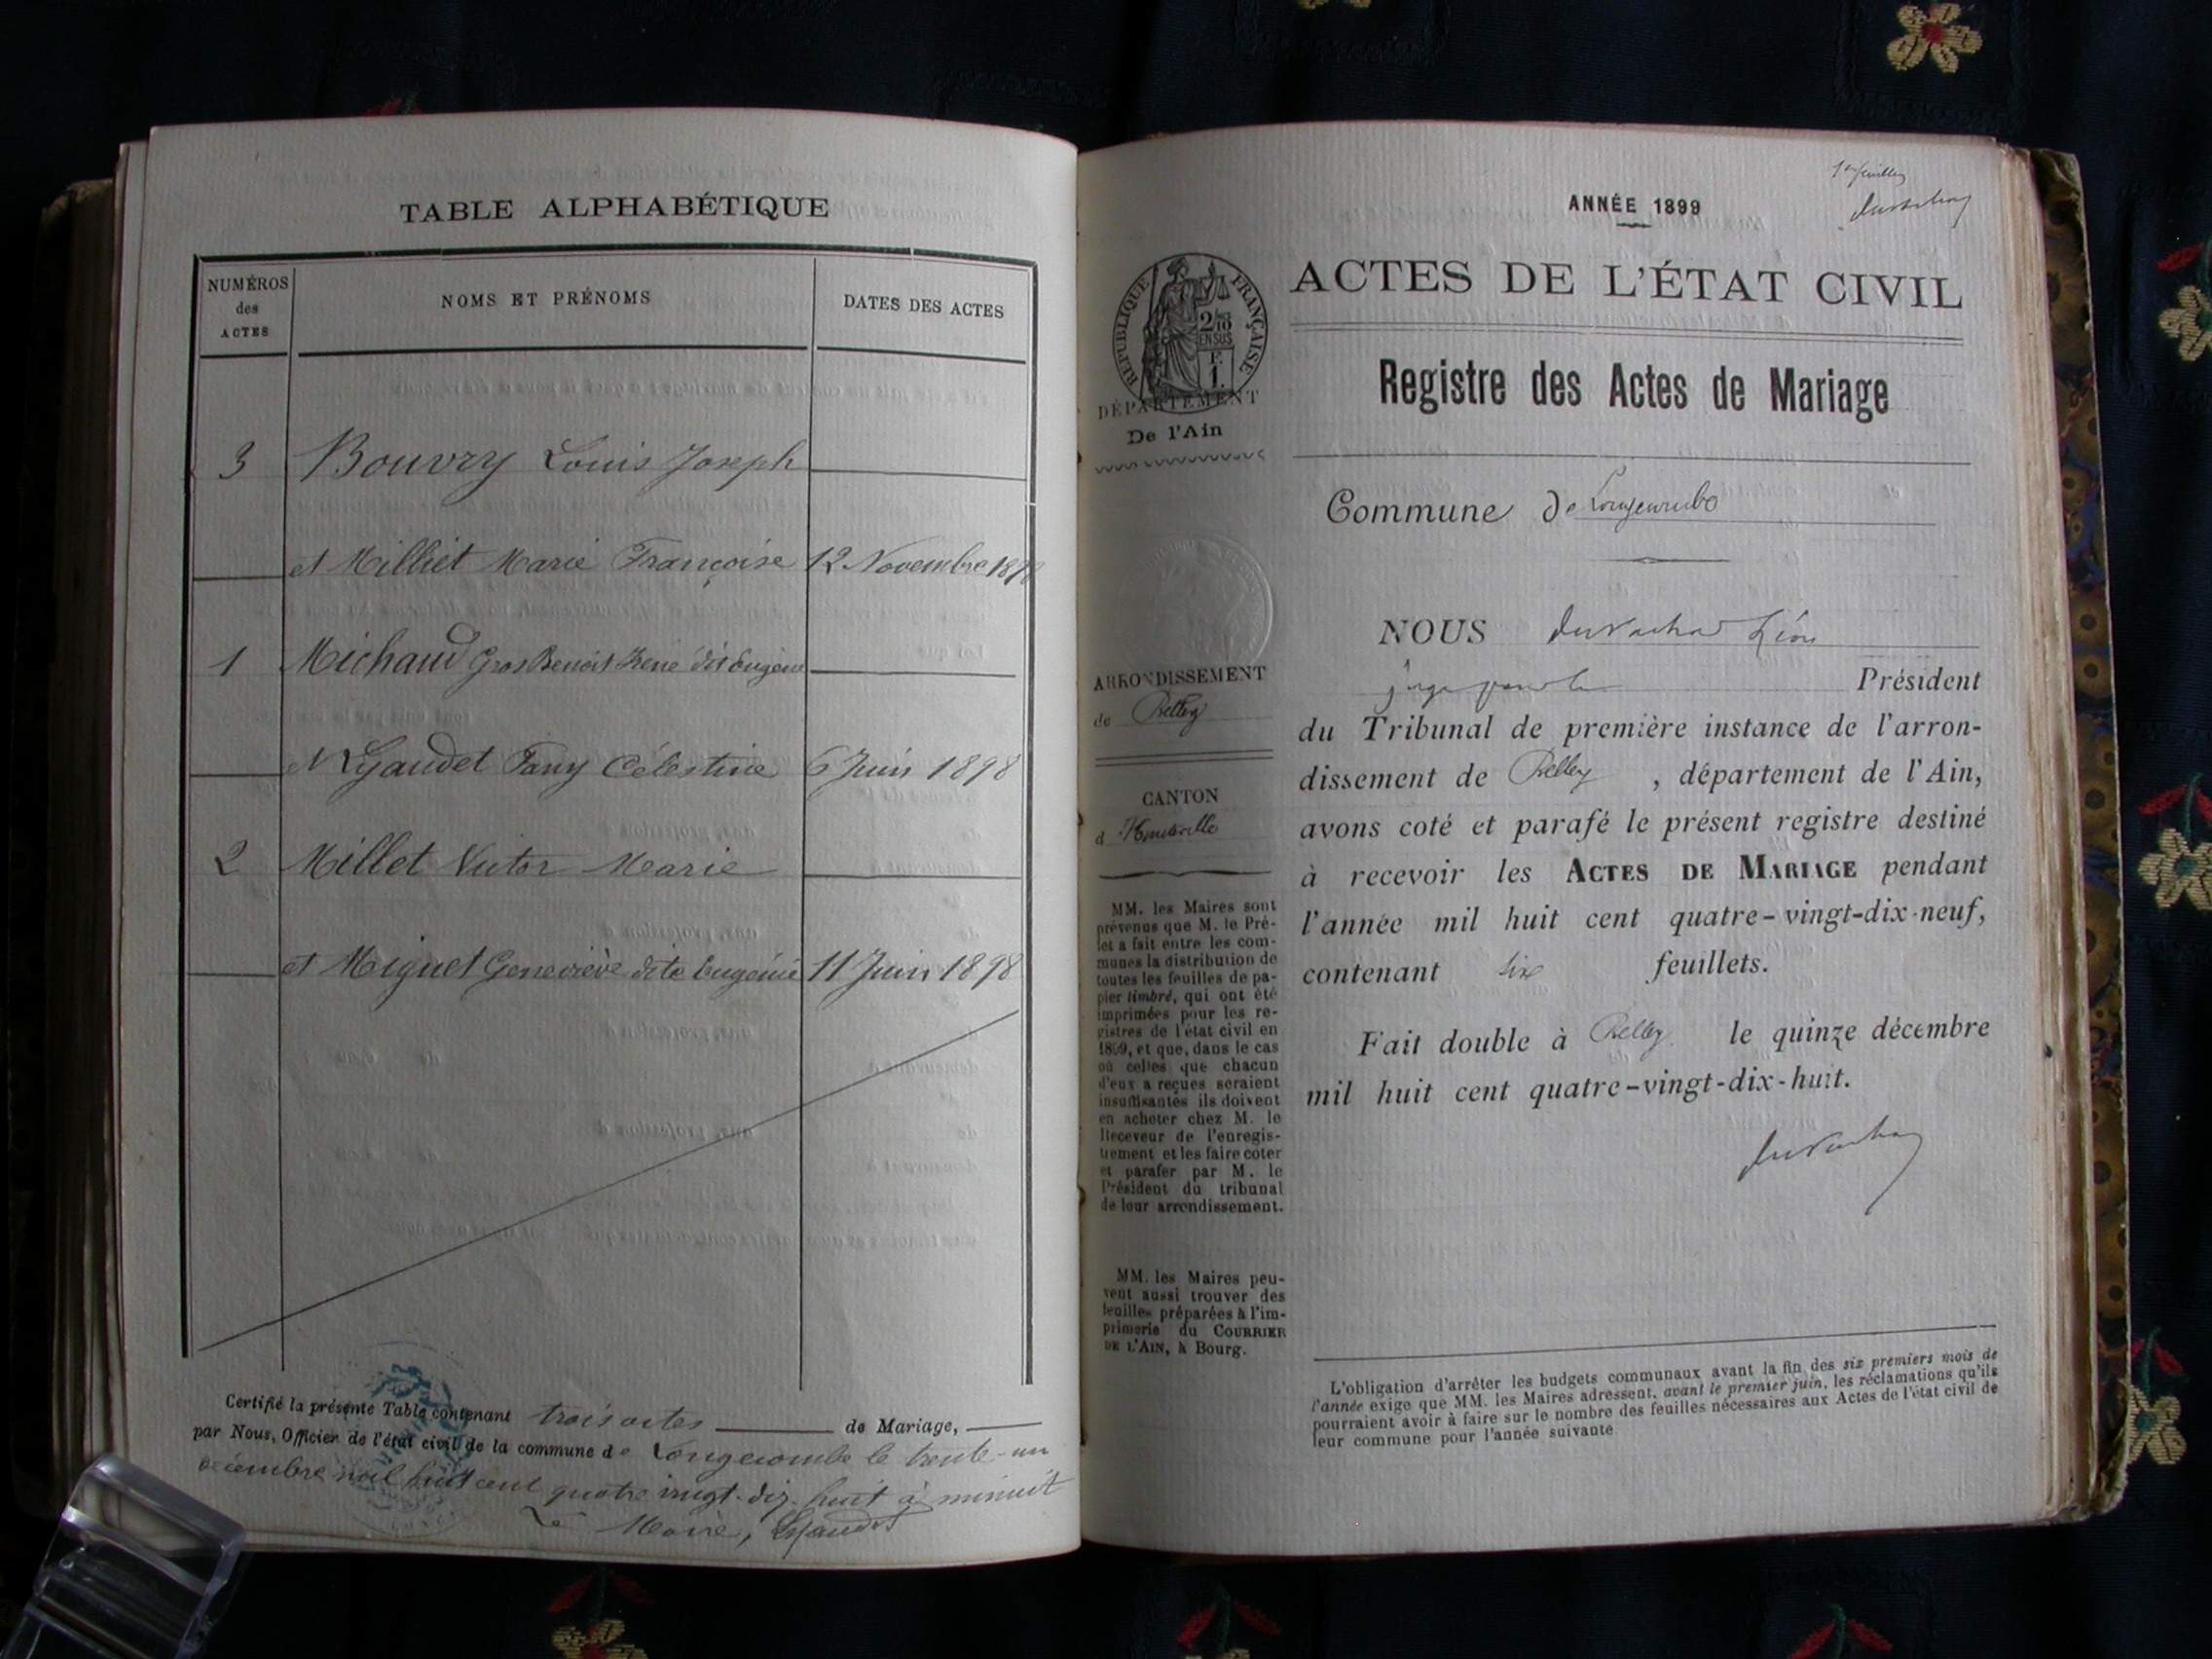 TABLE ALPHABÉTIQUE
NUMÉROS
des
ACTES
NOMS ET PRÉNOMS
DATES DES ACTES
3 Bouvry Louis Joseph
et Milliet Marie Françoise 12 Novembre 1898
1 Michaud Gros Benoit René dit Eugène
Fany Célestine 6 Juin 1898
2 Millet Victor Marie
et Miguet Geneviève dite Eugénie 11 Juin 1898
Certifié la présente Table contenant trois actes de Mariage,
par Nous, Officier de l'état civil de la commune de Longecombe le trente-un
décembre mil huit cent quatre vingt-dix-huit à minuit
Le Maire,
ANNÉE 1899
RÉPUBLIQUE FRANÇAISE
2/10
EN SUS
F.
1.
DÉPARTEMENT
De l'Ain
ACTES DE L'ÉTAT CIVIL
Registre des Actes de Mariage
Commune de Longecombe
ARRONDISSEMENT
de Belley
CANTON
d'Hauteville
MM. les Maires sont
prévenus que M. le Pré-
fet a fait entre les com-
munes la distribution de
toutes les feuilles de pa-
pier timbré, qui ont été
imprimées pour les re-
gistres de l'état civil en
1899, et que, dans le cas
où celles que chacun
d'eux a reçues seraient
insuffisantes ils doivent
en acheter chez M. le
Receveur de l'enregis-
trement et les faire coter
et parafer par M. le
Président du tribunal
de leur arrondissement.
MM. les Maires peu-
vent aussi trouver des
feuilles préparées à l'im-
primerie du COURRIER
DE L'AIN, à Bourg.
NOUS Léon
Président
du Tribunal de première instance de l'arron-
dissement de Belley, département de l'Ain,
avons coté et parafé le présent registre destiné
à recevoir les ACTES DE MARIAGE pendant
l'année mil huit cent quatre-vingt-dix-neuf,
contenant six feuillets.
Fait double à Belley le quinze décembre
mil huit cent quatre-vingt-dix-huit.
L'obligation d'arrêter les budgets communaux avant la fin des six premiers mois de
l'année exige que MM. les Maires adressent, avant le premier juin, les réclamations qu'ils
pourraient avoir à faire sur le nombre des feuilles nécessaires aux Actes de l'état civil de
leur commune pour l'année suivante